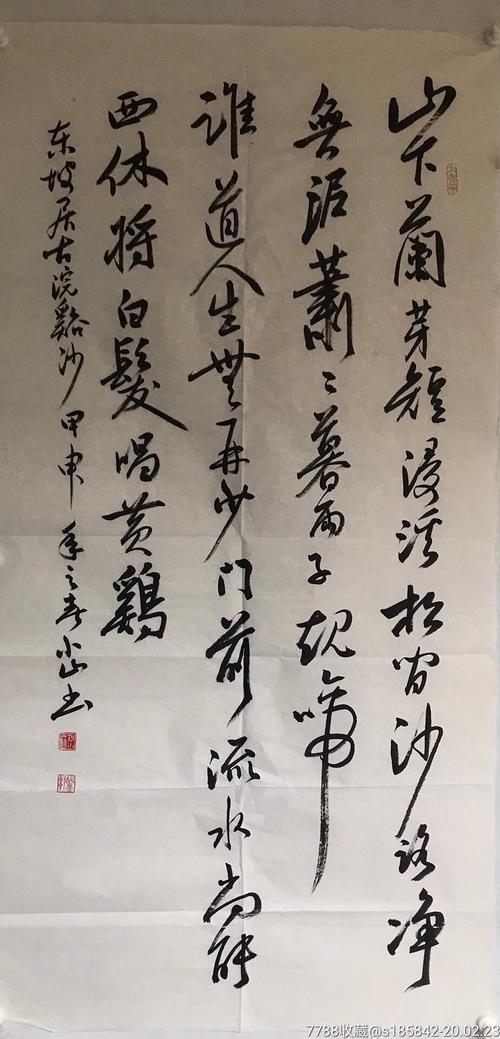 山下蘭芽短浸溪松間沙路净
無泥蕭〻暮雨子規啼
誰道人生無再少門前流水尚能
西休將白髮唱黄鷄
东坡居士浣谿沙 甲申年之春小山书
7788收藏@s185842-20.02.23